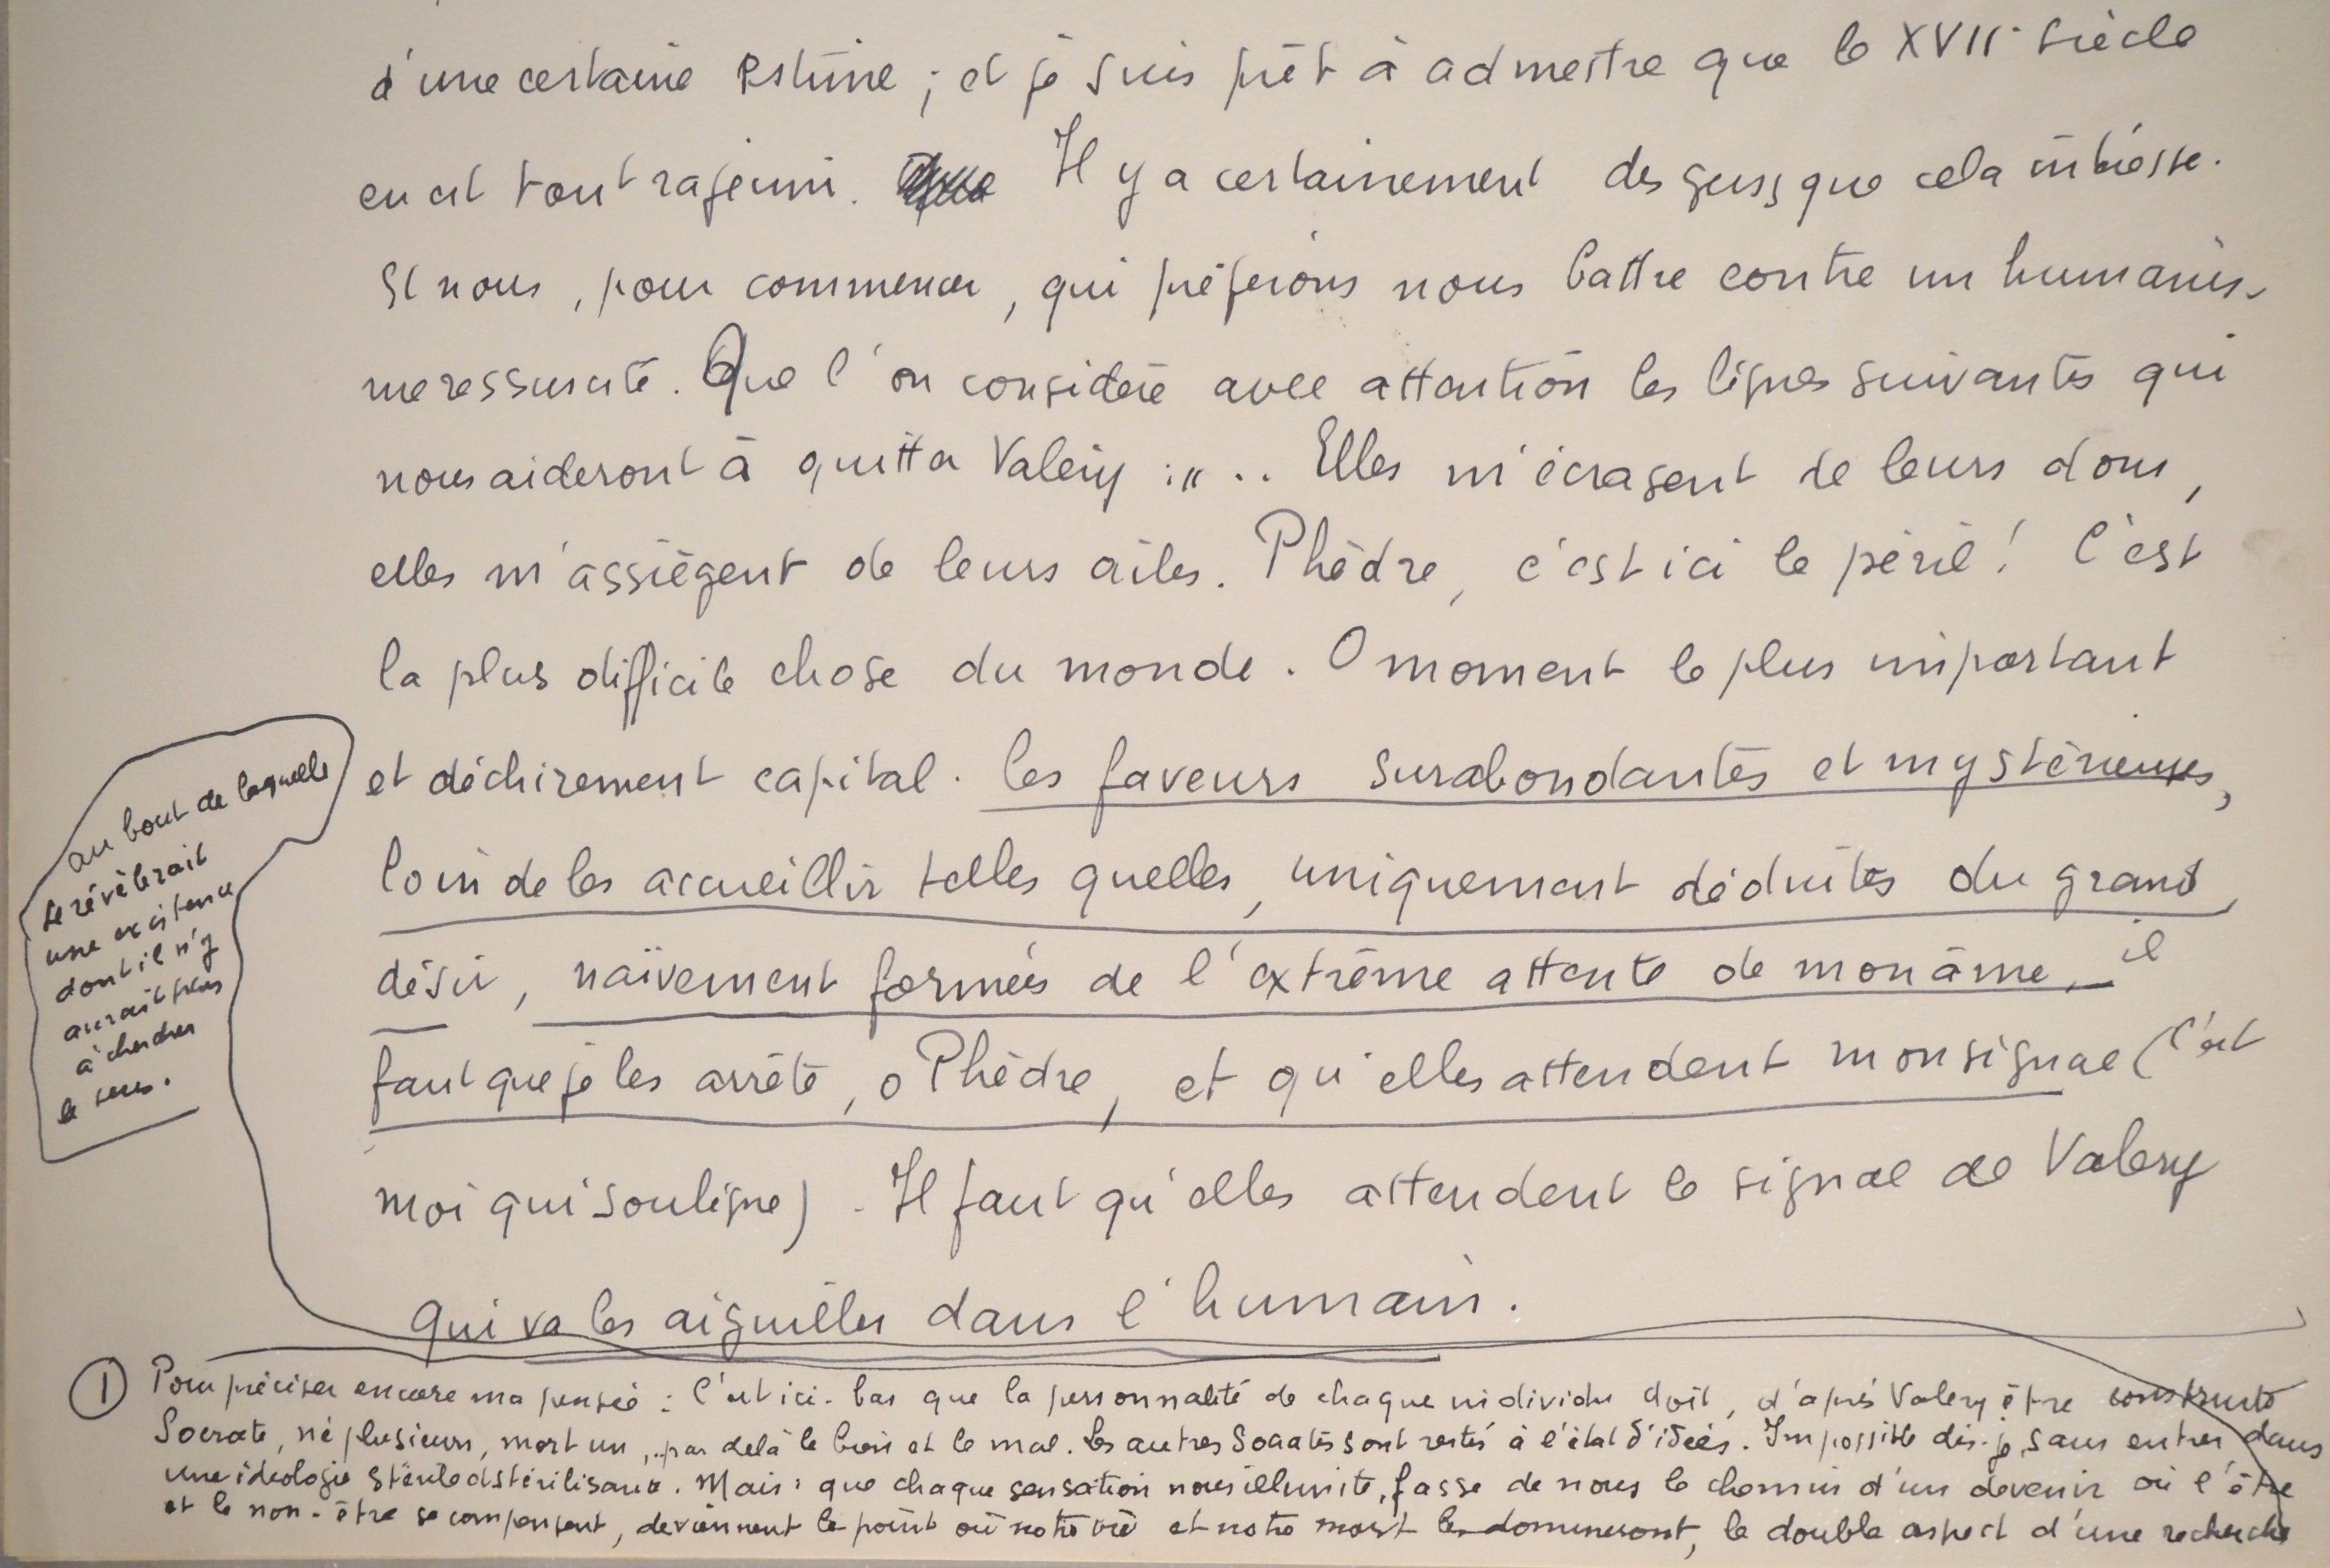 d'une certaine estime ; et je suis prêt à admettre que le XVIIe siècle
en est tout rajeuni. Il y a certainement des gens que cela intéresse.
Et nous, pour commencer, qui préférons nous battre contre un humanis-
me ressuscité. Que l'on considère avec attention les lignes suivantes qui
nous aideront à quitter Valéry : " .. Elles m'écrasent de leurs dons,
elles m'assiègent de leurs ailes. Phèdre, c'est ici le péril ! C'est
la plus difficile chose du monde. O moment le plus important
et déchirement capital. Ces faveurs surabondantes et mystérieuses,
loin de les accueillir telles quelles, uniquement déduites du grand
désir, naïvement formées de l'extrême attente de mon âme, il
faut que je les arrête, o Phèdre, et qu'elles attendent mon signal (c'est
moi qui souligne). Il faut qu'elles attendent le signal de Valery
qui va les aiguiller dans l'humain.
① Pour préciser encore ma pensée : C'est ici-bas que la personnalité de chaque individu doit, d'après Valery être construite
Socrate, né plusieurs, mort un, .. par delà le bien et le mal. Les autres Socrates sont restés à l'état d'idées. Impossible dis-je, sans entrer dans
une idéologie stérile et stérilisante. Mais : que chaque sensation nous illimite, fasse de nous le chemin d'un devenir où l'être
et le non-être se compensent, deviennent le point où notre vie et notre mort les domineront, le double aspect d'une recherche
au bout de laquelle
se révèlerait
une existence
dont il n'y
aurait plus
à chercher
le sens.